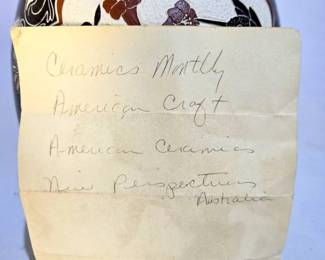 Ceramics Monthly
American Craft
American Ceramics
New Perspectives
Australia